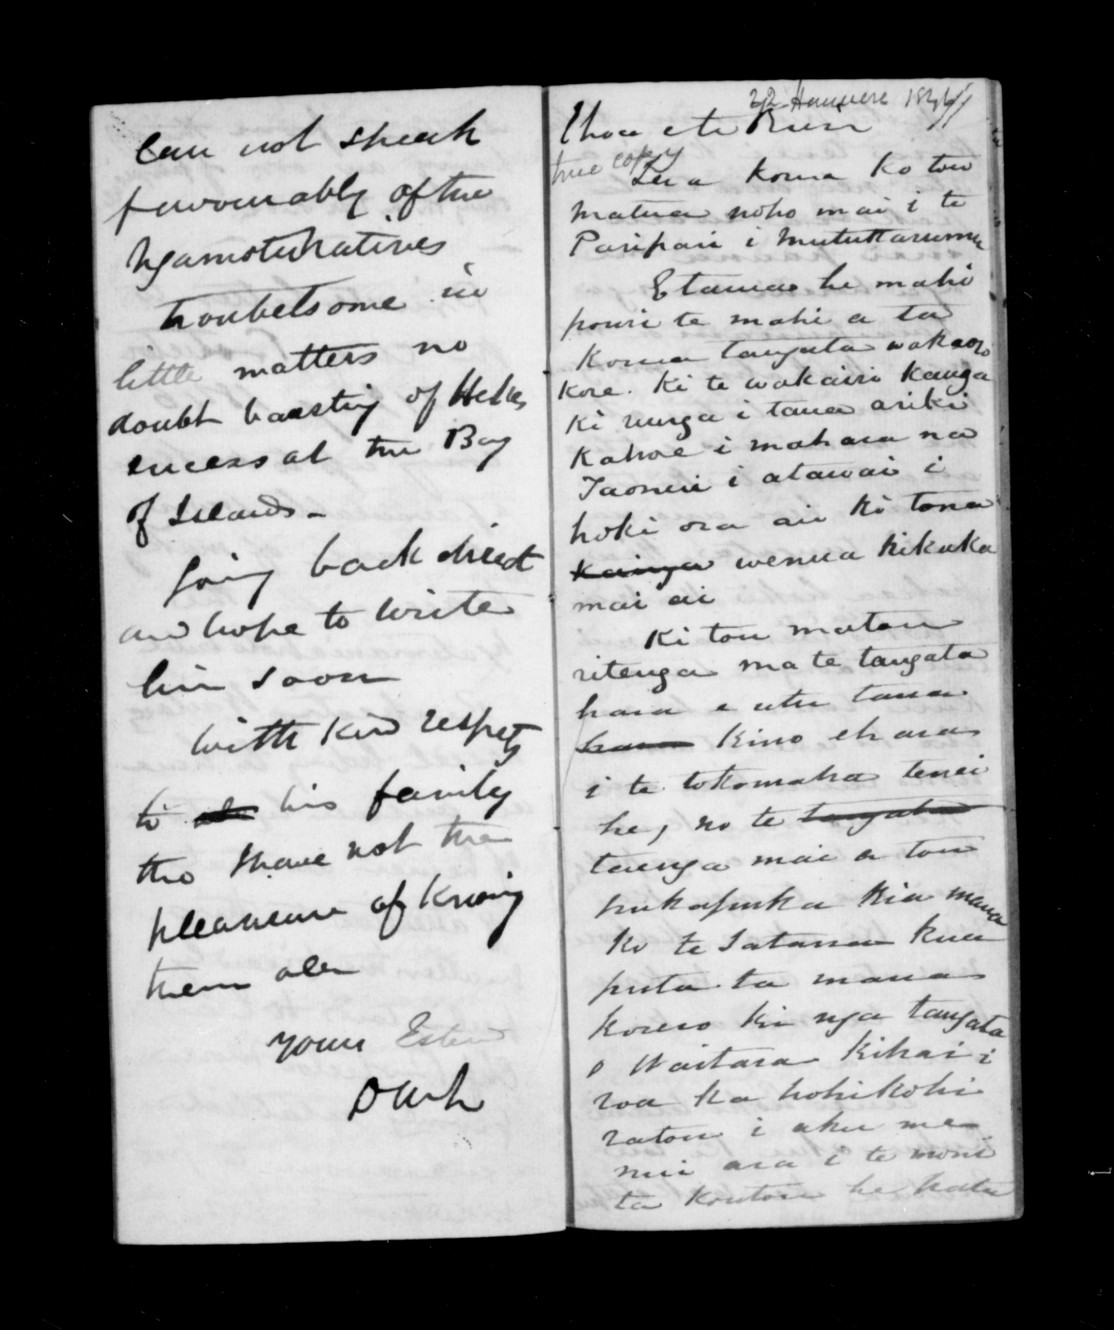 Can not speak
favourably of the
Ngamotu Natives
troubelsome in
little matters no
doubt boasting of Hekes
sucess at the Bay
of Islands -
Going back direct
and hope to write
him soon
with kind respects
to his family
tho I have not the
pleasure of knowing
them all
Yours
22 Hanuere 1846
E hoa e te
true copy
koma ko tou
matua noho mai i te
Paripari i
E tama he mahi
pouri te mahi a ta
koma tangata wakaaro
kore. Ki te wakairi kanga
ki runga i tana ariki
Kahore i mahara na
Taonui i atawai i
hoki ora ai ki tona
kainga wenua kikaka
mai ai
Ki tou matou
ritenga ma te tangata
hara e utu tana
kino ehara
i te tokomaha tenei
he, no te tangata
taenga mai o tou
pukapuka kia maua
ko te Satana kua
puta ta maua
korero ki nga tangata
o Waitara kihai i
roa ka kohikohi
ratou i aku mea
nui ara i te moni
ta koutou he